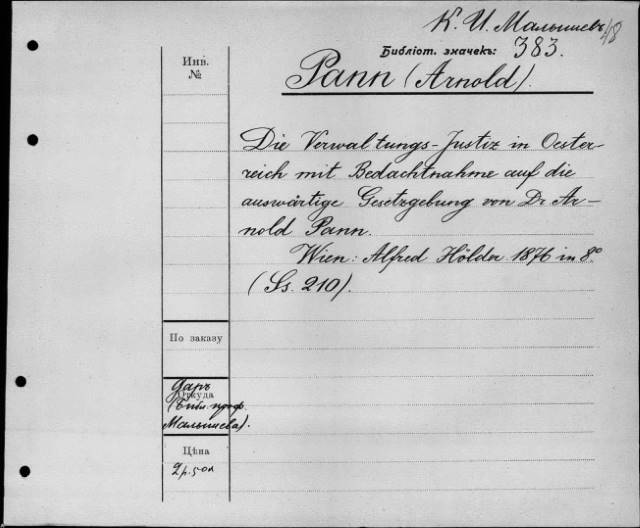 К. И. Малышевъ 48
Библіот. значекъ: 383.
Инв.
№
Pann (Arnold).
Die Verwaltungs-Justiz in Oester-
reich mit Bedachtnahme auf die
auswärtige Gesetzgebung von Dr Ar-
nold Pann.
Wien: Alfred Hölder 1876 in 8°
(Ss. 210).
По заказу
Даръ
Откуда
(Библ. проф.
Малышева).
Цѣна
2 р. 50 к